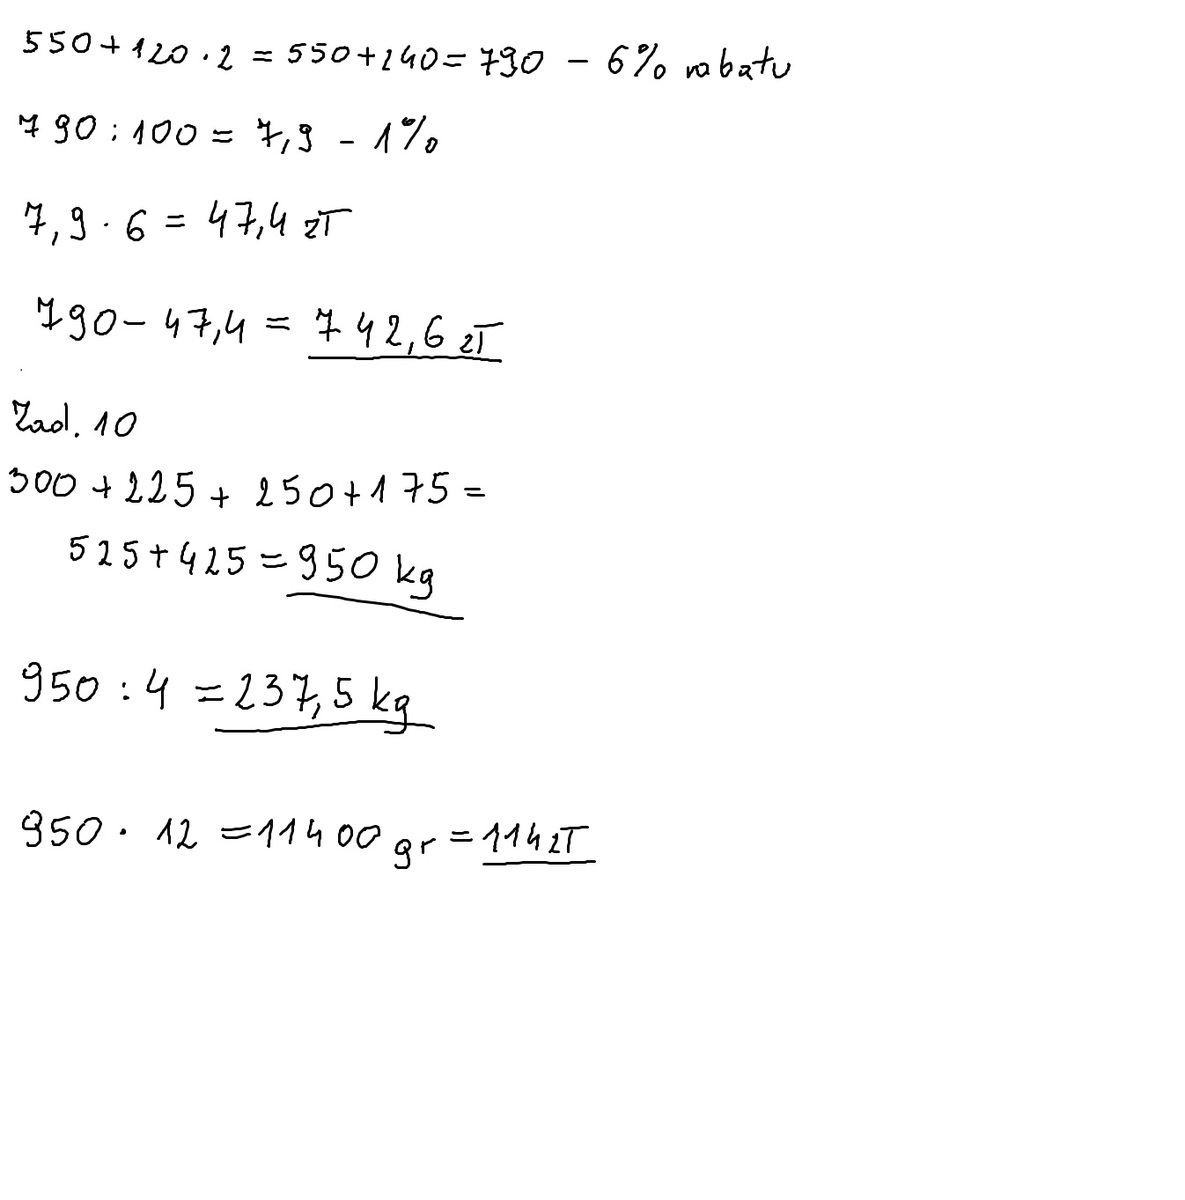 550+120·2=550+240=790 - 6% rabatu
790:100=7,9 - 1%
7,9·6=47,4 zł
790-47,4=742,6 zł
Zad. 10
300+225+250+175=
525+425=950 kg
950:4=237,5 kg
950·12=11400 gr=114 zł